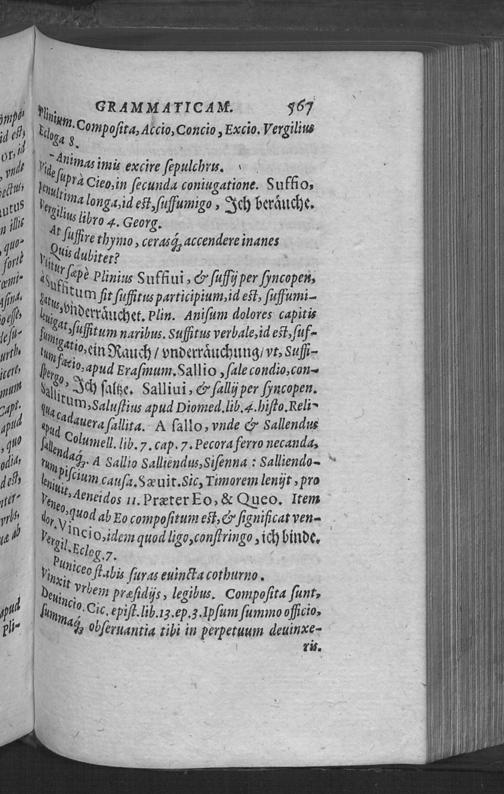 GRAMMATICAM. 567
Plinium. Composita, Accio, Concio, Excio. Vergilius
Ecloga 8.
–Animas imis excire sepulchris.
Vide suprà Cieo, in secunda coniugatione. Suffio,
penultima longa, id est, suffumigo, Ich beräuche.
Vergilius libro 4. Georg.
At suffire thymo, cerasq́; accendere inanes
Quis dubitet?
Vtitur sæpè Plinius Suffiui, & suffij per syncopen,
à Suffitum fit suffitus participium, id est, suffumi-
gatus, vnderräuchet. Plin. Anisum dolores capitis
leuigat, suffitum naribus. Suffitus verbale, id est, suf-
fumigatio, ein Rauch / vnderräuchung / vt, Suffi-
tum facio, apud Erasmum. Sallio, sale condio, con-
spergo, Ich saltze. Salliui, & sallij per syncopen.
Sallitum, Salustius apud Diomed. lib. 4. histo. Reli-
qua cadauera sallita. A sallo, vnde & Sallendus
apud Columell. lib. 7. cap. 7. Pecora ferro necanda,
sallendaq́;. A Sallio Salliendus, Sisenna : Salliendo-
rum piscium causa. Sæuit. Sic, Timorem lenijt, pro
leniuit, Aeneidos 11. Præter Eo, & Queo. Item
Veneo, quod ab Eo compositum est, & significat ven-
dor. Vincio, idem quod ligo, constringo, ich binde.
Vergil. Eclog. 7.
Puniceo stabis suras euincta cothurno.
Vinxit vrbem præsidijs, legibus. Composita sunt,
Deuincio. Cic. epist. lib. 13. ep. 3. Ipsum summo officio,
summaq́; obseruantia tibi in perpetuum deuinxe-
ris.
id est,
or, id
, vnde
n illic
, quo-
forte
asina,
Cape.
apud
, quo
odia,
d est,
nter-
vrbs,
apud
Pli-